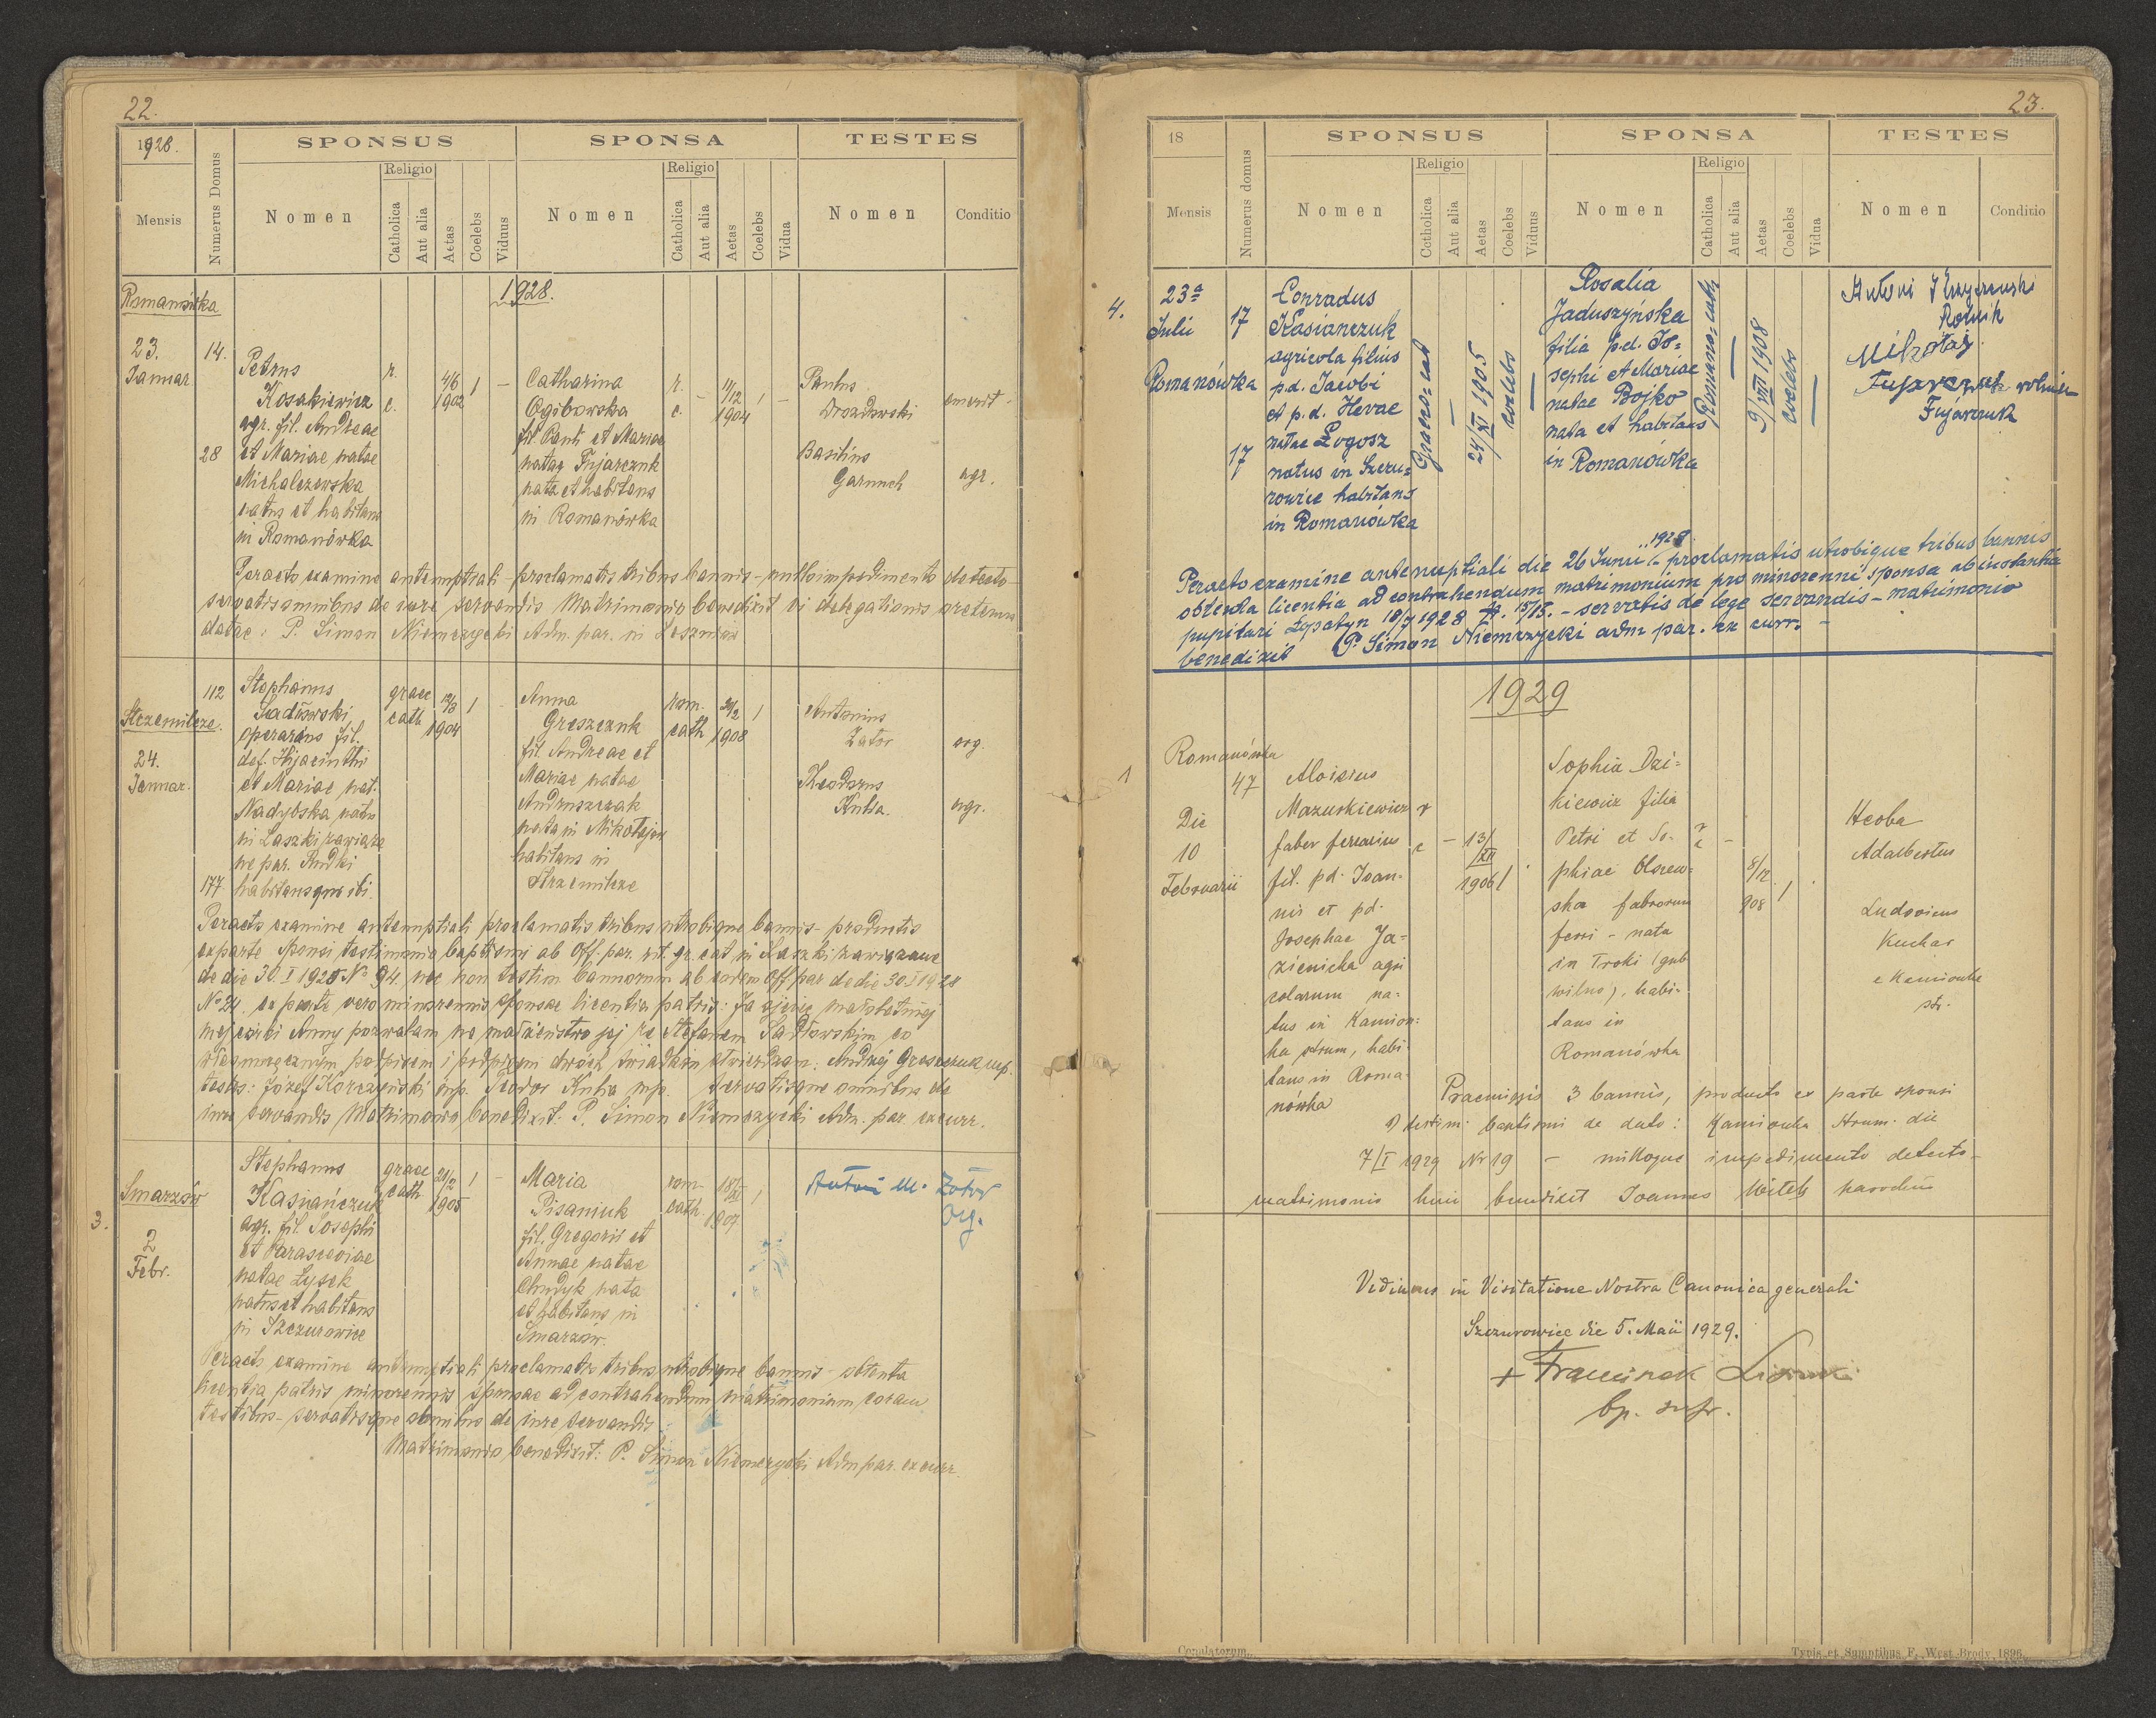 22.
1928.
SPONSUS
SPONSA
TESTES
Mensis
Numerus Domus
Nomen
Religio
Catholica
Aut alia
Aetas
Coelebs
Viduus
Nomen
Religio
Catholica
Aut alia
Aetas
Coelebs
Vidua
Nomen
Conditio
Romanówka
1928.
23.
Januar
14.
28
Petrus
Kosakiewicz
agr. fil. Andreae
et Mariae natae
Michalczewska
natus et habitans
in Romanówka
r.
c.
4/6
1902
1
-
Catharina
Ogibowska
fil. Panti et Mariae
natae Fujarczuk
nata et habitans
in Romanówka
r.
c.
-
11/12
1904
1
-
Paulus
Drozdowski
emerit.
Basilius
Garuch
agr.
Peracto examine antenuptiali - proclamatis tribus bannis - nullo impedimento detecto -
servatis omnibus de iure servandis Matrimonio benedixit vi delegationis
datae: P. Simon Niemczycki Adm. par. in Leszniów
Strzemilcze.
24.
Januar.
112
177
Stephanus
Sadłowski
operarius fil.
def. Hijacinthi
et Mariae nat.
Nadybska natus
in Laszki zawiąza
ne par. Rudki
habitansque ibi.
graec
cath
12/3
1904
1
Anna
Greszczuk
fil. Andreae et
Mariae natae
Andruszczak
nata in Mikołajów
habitans in
Strzemilcze
rom.
cath
21/2
1908
1
Antonius
Zator
org.
Theodorus
Kuba.
agr.
Peracto examine antenuptiali proclamatis tribus utrobique bannis - productis
ex parte sponsi testimonio baptismi ab Off. par. rit. gr. cat in Laszki zawiązane
de die 30. I 1928 No 94, nec non testim bannorum ab eodem Off par de die 30 I 1928
No 24. ex parte vero minorennis sponsae licentia patris: Ja ojciec małoletniej
mej córki Anny pozwalam na małżeństwo jej ze Stefanem Sadłowskim co
własnoręcznym podpisem i podpisem dwóch świadków stwierdzam: Andrzej Greszczuk mp.
testes: Józef Korczyński mp. Teodor Kuba mp. servatisque omnibus de
iure servandis Matrimonio benedixit: P. Simon Niemczycki Adm. par. excurr.
3.
Smarzów
2
Febr.
Stephanus
Kasiańczuk
agr. fil. Josephi
et Parasceviae
natae Łysek
natus et habitans
in Szczurowice
graec
cath
21/2
1905
1
-
Maria
Pisaniuk
fil. Gregorii et
Annae natae
Chudyk nata
et habitans in
Smarzów.
rom.
cath.
18/XI
1907
1
Antoni M. Zator
Org.
Peracto examine antenuptiali proclamatis tribus utrobique bannis - obtenta
licentia patris minorennis sponsae ad contrahendum matrimonium coram
testibus - servatisque omnibus de iure servandis
Matrimonio benedixit: P. Simon Niemczycki Adm par. excurr.
23.
18
SPONSUS
SPONSA
TESTES
Mensis
Numerus domus
Nomen
Religio
Cotholica
Aut alia
Aetas
Coelebs
Viduus
Nomen
Religio
Catholica
Aut alia
Aetas
Coelebs
Vidua
Nomen
Conditio
4.
23a
Julii
Romanówka
17
17
Conradus
Kasianczuk
agricola filius
pd. Jacobi
et p.d. Hevae
natae Łogosz
natus in Szczu=
rowice habitans
in Romanówka
Graeco-cat
-
24/XI 1905
coelebs
-
Rosalia
Jaduszyńska
filia p.d. Jo=
sephi et Mariae
natae Bojko
nata et habitans
in Romanówka
Romano-cath
-
9/VIII 1908
coelebs
-
Antoni
Rolnik
Mikołaj
Fujarczuk rolnik
Fujarczuk
Peracto examine antenuptiali die 26 Junii 1928 - proclamatis utrobique tribus bannis
obtenta licentia ad contrahendum matrimonium pro minorenni sponsa ab instantia
pupilari Łopatyn 18/7 1928 15/15. - servatis de lege servandis - matrimonio
benedixit P. Simon Niemczycki adm par. ex curr. -
1929
1
Romanówka
47
Die
10
Februarii
Aloisius
Mazurkiewicz
faber ferrarius
fil. pd. Joan=
nis et pd.
Josephae Ja=
zienicka agri
colarum na=
tus in Kamion=
ka strum, habi=
tans in Roma
nówka
r
c
-
13/XII
1906
1
Sophia Dzi=
kiewicz filia
Petri et So=
phiae Olszew=
ska fabrorum
ferri - nata
in Troki (gub
wilno), habi=
tans in
Romanówka
r
c
-
8/12
908
1
Heoba
Adalbertus
Ludovicus
Kuchar
e Kamionka
str.
Praemissis 3 bannis, producto ex parte sponsi
testim. baptismi de dato: Kamionka Strum. die
7/I 1929 Nr 19 - nulloque impedimento detecto -
matrimonio huic benedixit Joannes Witek parochus
Vidimus in Visitatione Nostra Canonica generali
Szczurowice die 5. Maii 1929.
+ Franciszek
bp. sufr.
Copulatorum.
Typis et Sumptibus F. West Brody, 1896.